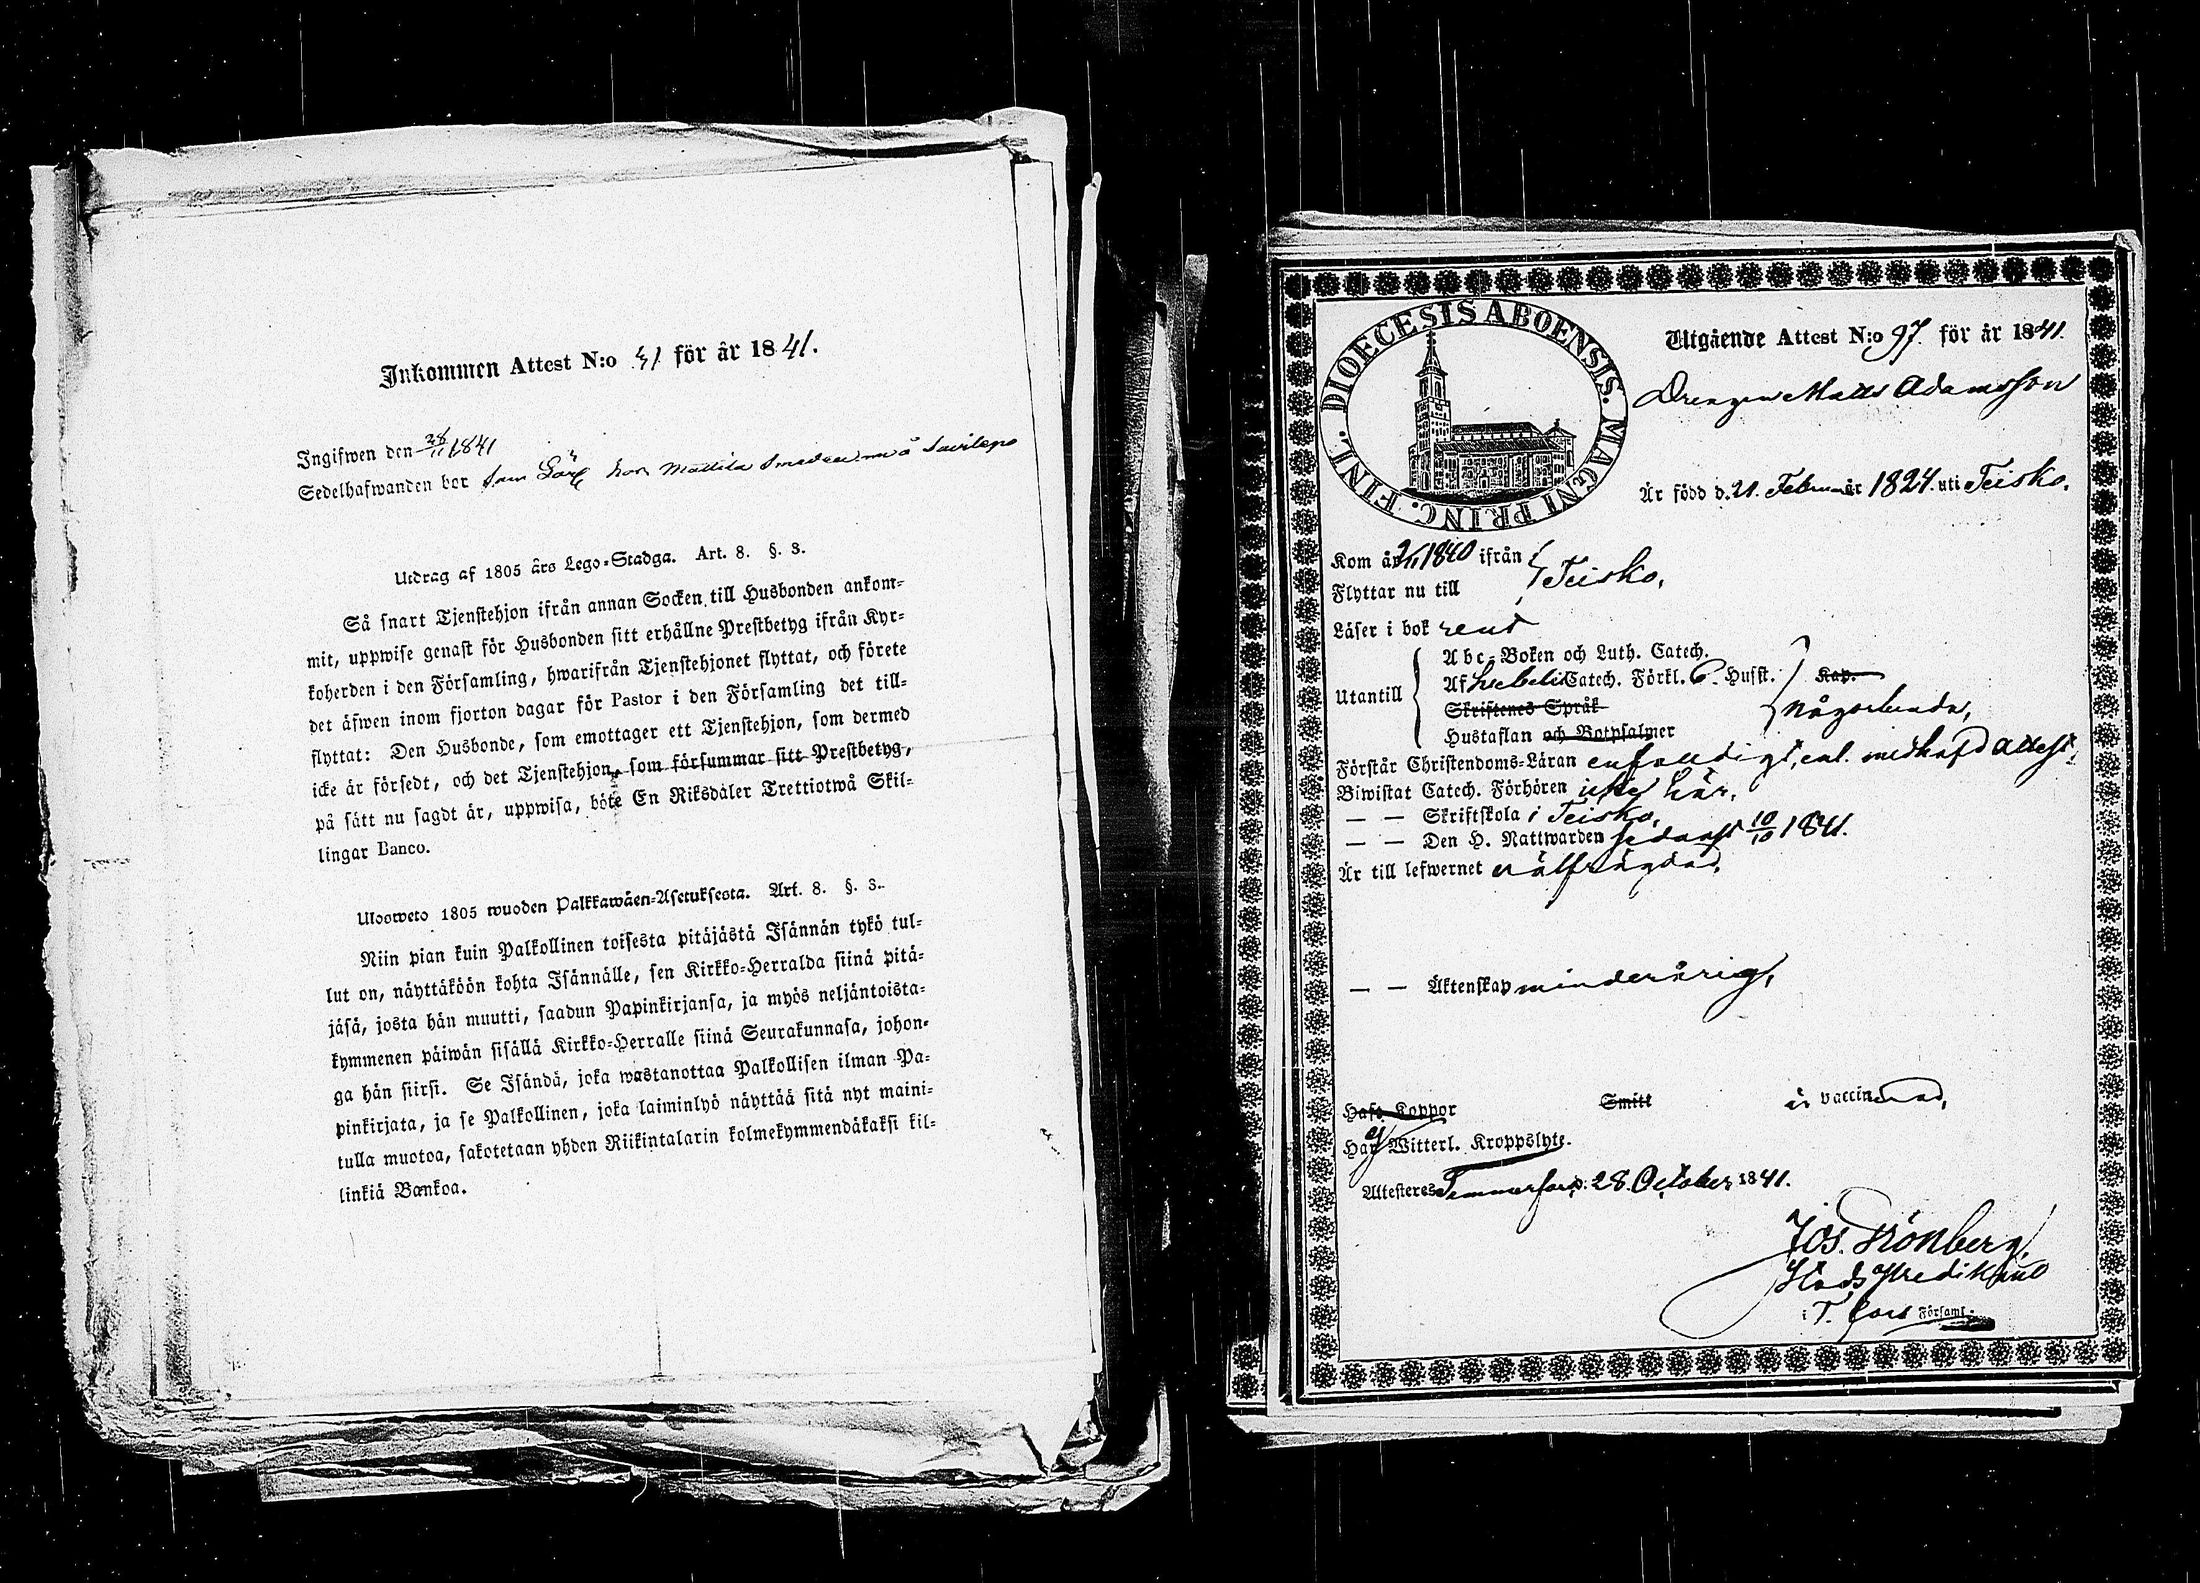 Inkommen Attest N:o 41 för år 1841.
Ingifwen den 28/11 1841
Sedelhafwanden bor som hos Mattila
Utdrag af 1805 års Lego-Stadga. Art. 8. §. 3.
Så snart Tjenstehjon ifrån annan Socken till Husbonden ankom-
mit, uppwise genast för Husbonden sitt erhållne Prestbetyg ifrån Kyr-
koherden i den Församling, hwarifrån Tjenstehjonet flyttat, och förete
det äfwen inom fjorton dagar för Pastor i den Församling det till-
flyttat: Den Husbonde, som emottager ett Tjenstehjon, som dermed
icke är försedt, och det Tjenstehjon, som försummar sitt Prestbetyg,
på sätt nu sagdt är, uppwisa, böte En Riksdaler Trettiotwå Skil-
lingar Banco.
Ulosweto 1805 wuoden Palkkawäen-Asetuksesta. Art. 8. §. 3.
Niin pian kuin Palkollinen toisesta pitäjästä Isännän tykö tul-
lut on, näyttäköön kohta Isännälle, sen Kirkko-Herralda siinä pitä-
jäsä, josta hän muutti, saadun Papinkirjansa, ja myös neljäntoista-
kymmenen päiwän sisällä Kirkko-Herralle siinä Seurakunnasa, johon-
ga hän siirsi. Se Isändä, joka wastanottaa Palkollisen ilman Pa-
pinkirjata, ja se Palkollinen, joka laiminlyö näyttää sitä nyt maini-
tulla muotoa, sakotetaan yhden Riikintalarin kolmekymmendäkaksi kil-
linkiä Bankoa.
DIOECESIS ABOENSIS. MAGNI PRINC. FINL.
Utgående Attest N:o 97. för år 1841.
Drengen Matts Adamsson
Är född d. 21. Februar år 1824. uti Teisko.
Kom år 2/11 1840 ifrån
Flyttar nu till Teisko,
Läser i bok rent
Utantill
Abc-Boken och Luth. Catech.
Af Svebelii Catech. Förkl. 6. Husst. Kap.
Skriftenes Språk
någorlunda,
Hustaflan och Botpsalmer
Förstår Christendoms-Läran enfaldigt, enl. medhafd Attest.
Biwistat Catech. Förhören icke här,
— — Skriftskola i Teisko,
— — Den H. Nattwarden sednast 10/10 1841.
Är till lefwernet välfrägdad,
— — Äktenskap minderårig,
Haft Koppor Smitt är vaccinerad,
Har ej Witterl. Kroppslyte.
Attesteres Tammerfors d. 28. October 1841.
Jos. Grönberg.
Stads Predikant
i T. fors Församl.